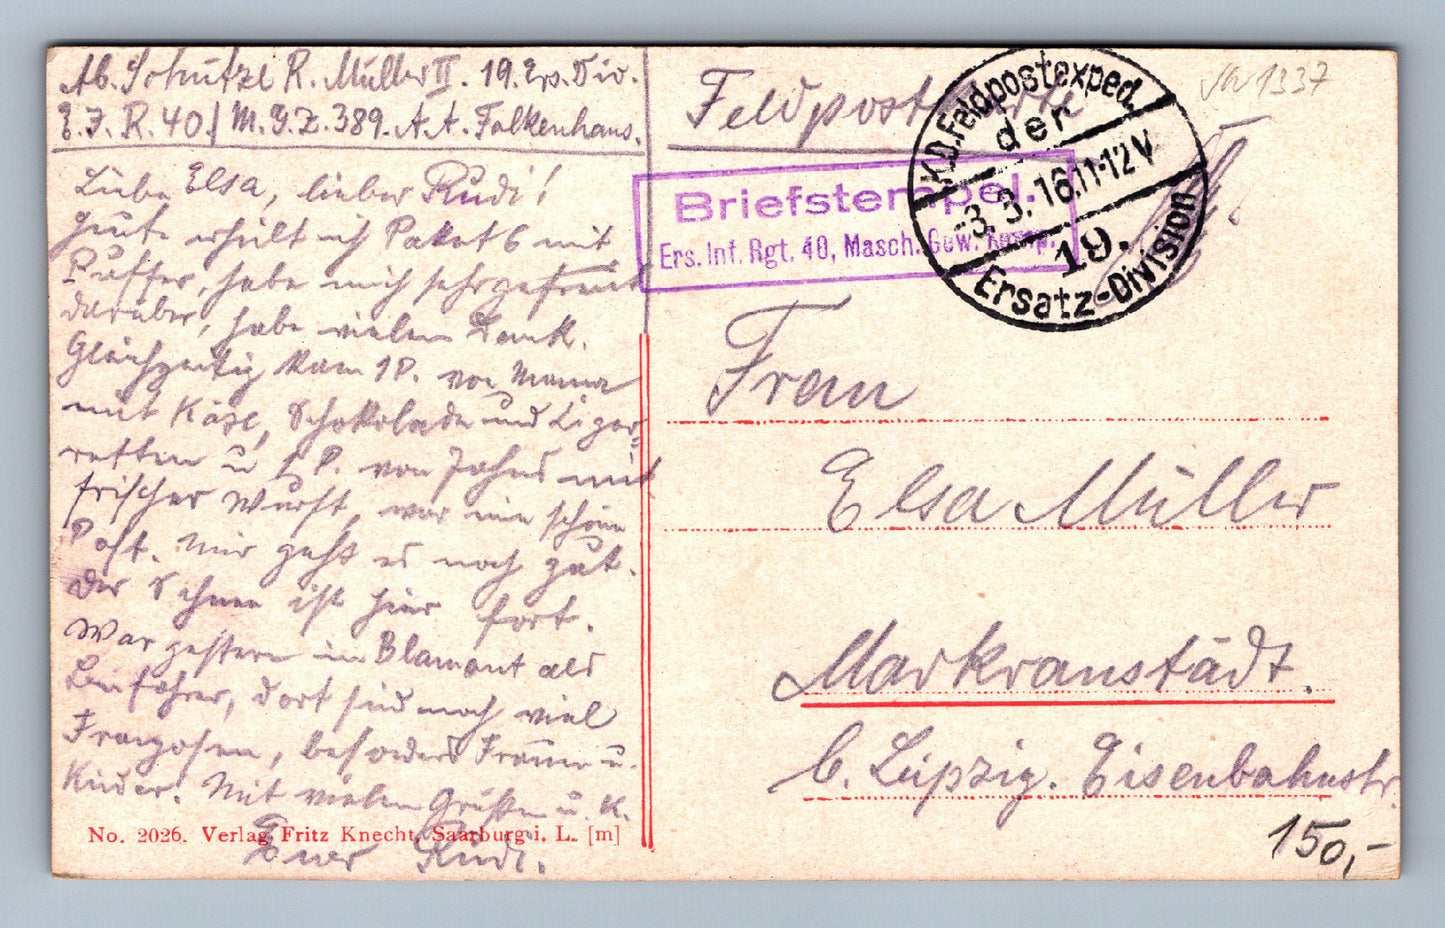 Ab. Schütze R. Müller II. 19. Ers. Div.
E. J. R. 40./ M. G. Z. 389. A. A. Falkenhaus.
Liebe Elsa, lieber Rudi!
Heute erhielt ich Paket 6 mit
Puffer, habe mich sehr gefreut
darüber, habe vielen Dank.
Gleichzeitig kam 1 P. von Mama
mit Käse, Schokolade und Zigar-
retten u. 1 P. von mit
frischer Wurst, war eine schöne
Post. Mir geht es noch gut.
Der Schnee ist hier fort.
War gestern in Blamont als
dort sind noch viel
Franzosen, besonders Frauen u.
Kinder. Mit vielen Grüßen u. K.
Euer Rudi.
No. 2026. Verlag Fritz Knecht, Saarburg i. L. [m]
Feldpostkarte
1337
Briefstempel.
Ers. Inf. Rgt. 40, Masch. Gew. Komp.
K.D. Feldpostexped.
der
-3. 3. 16. 11-12 V
19.
Ersatz-Division
Frau
Elsa Müller
Markranstädt.
b. Leipzig. Eisenbahnstr.
150,-